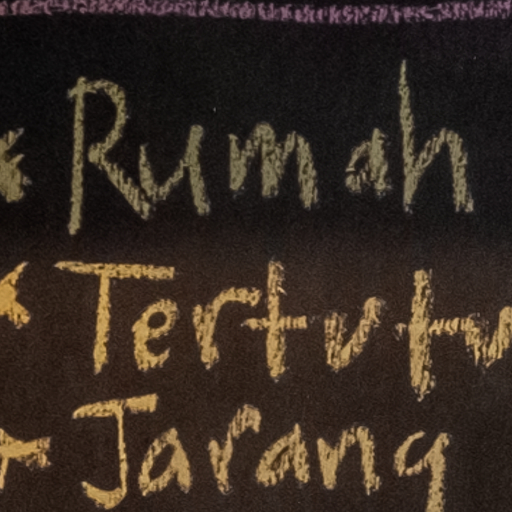 Rumah
Tertutu
Jarang